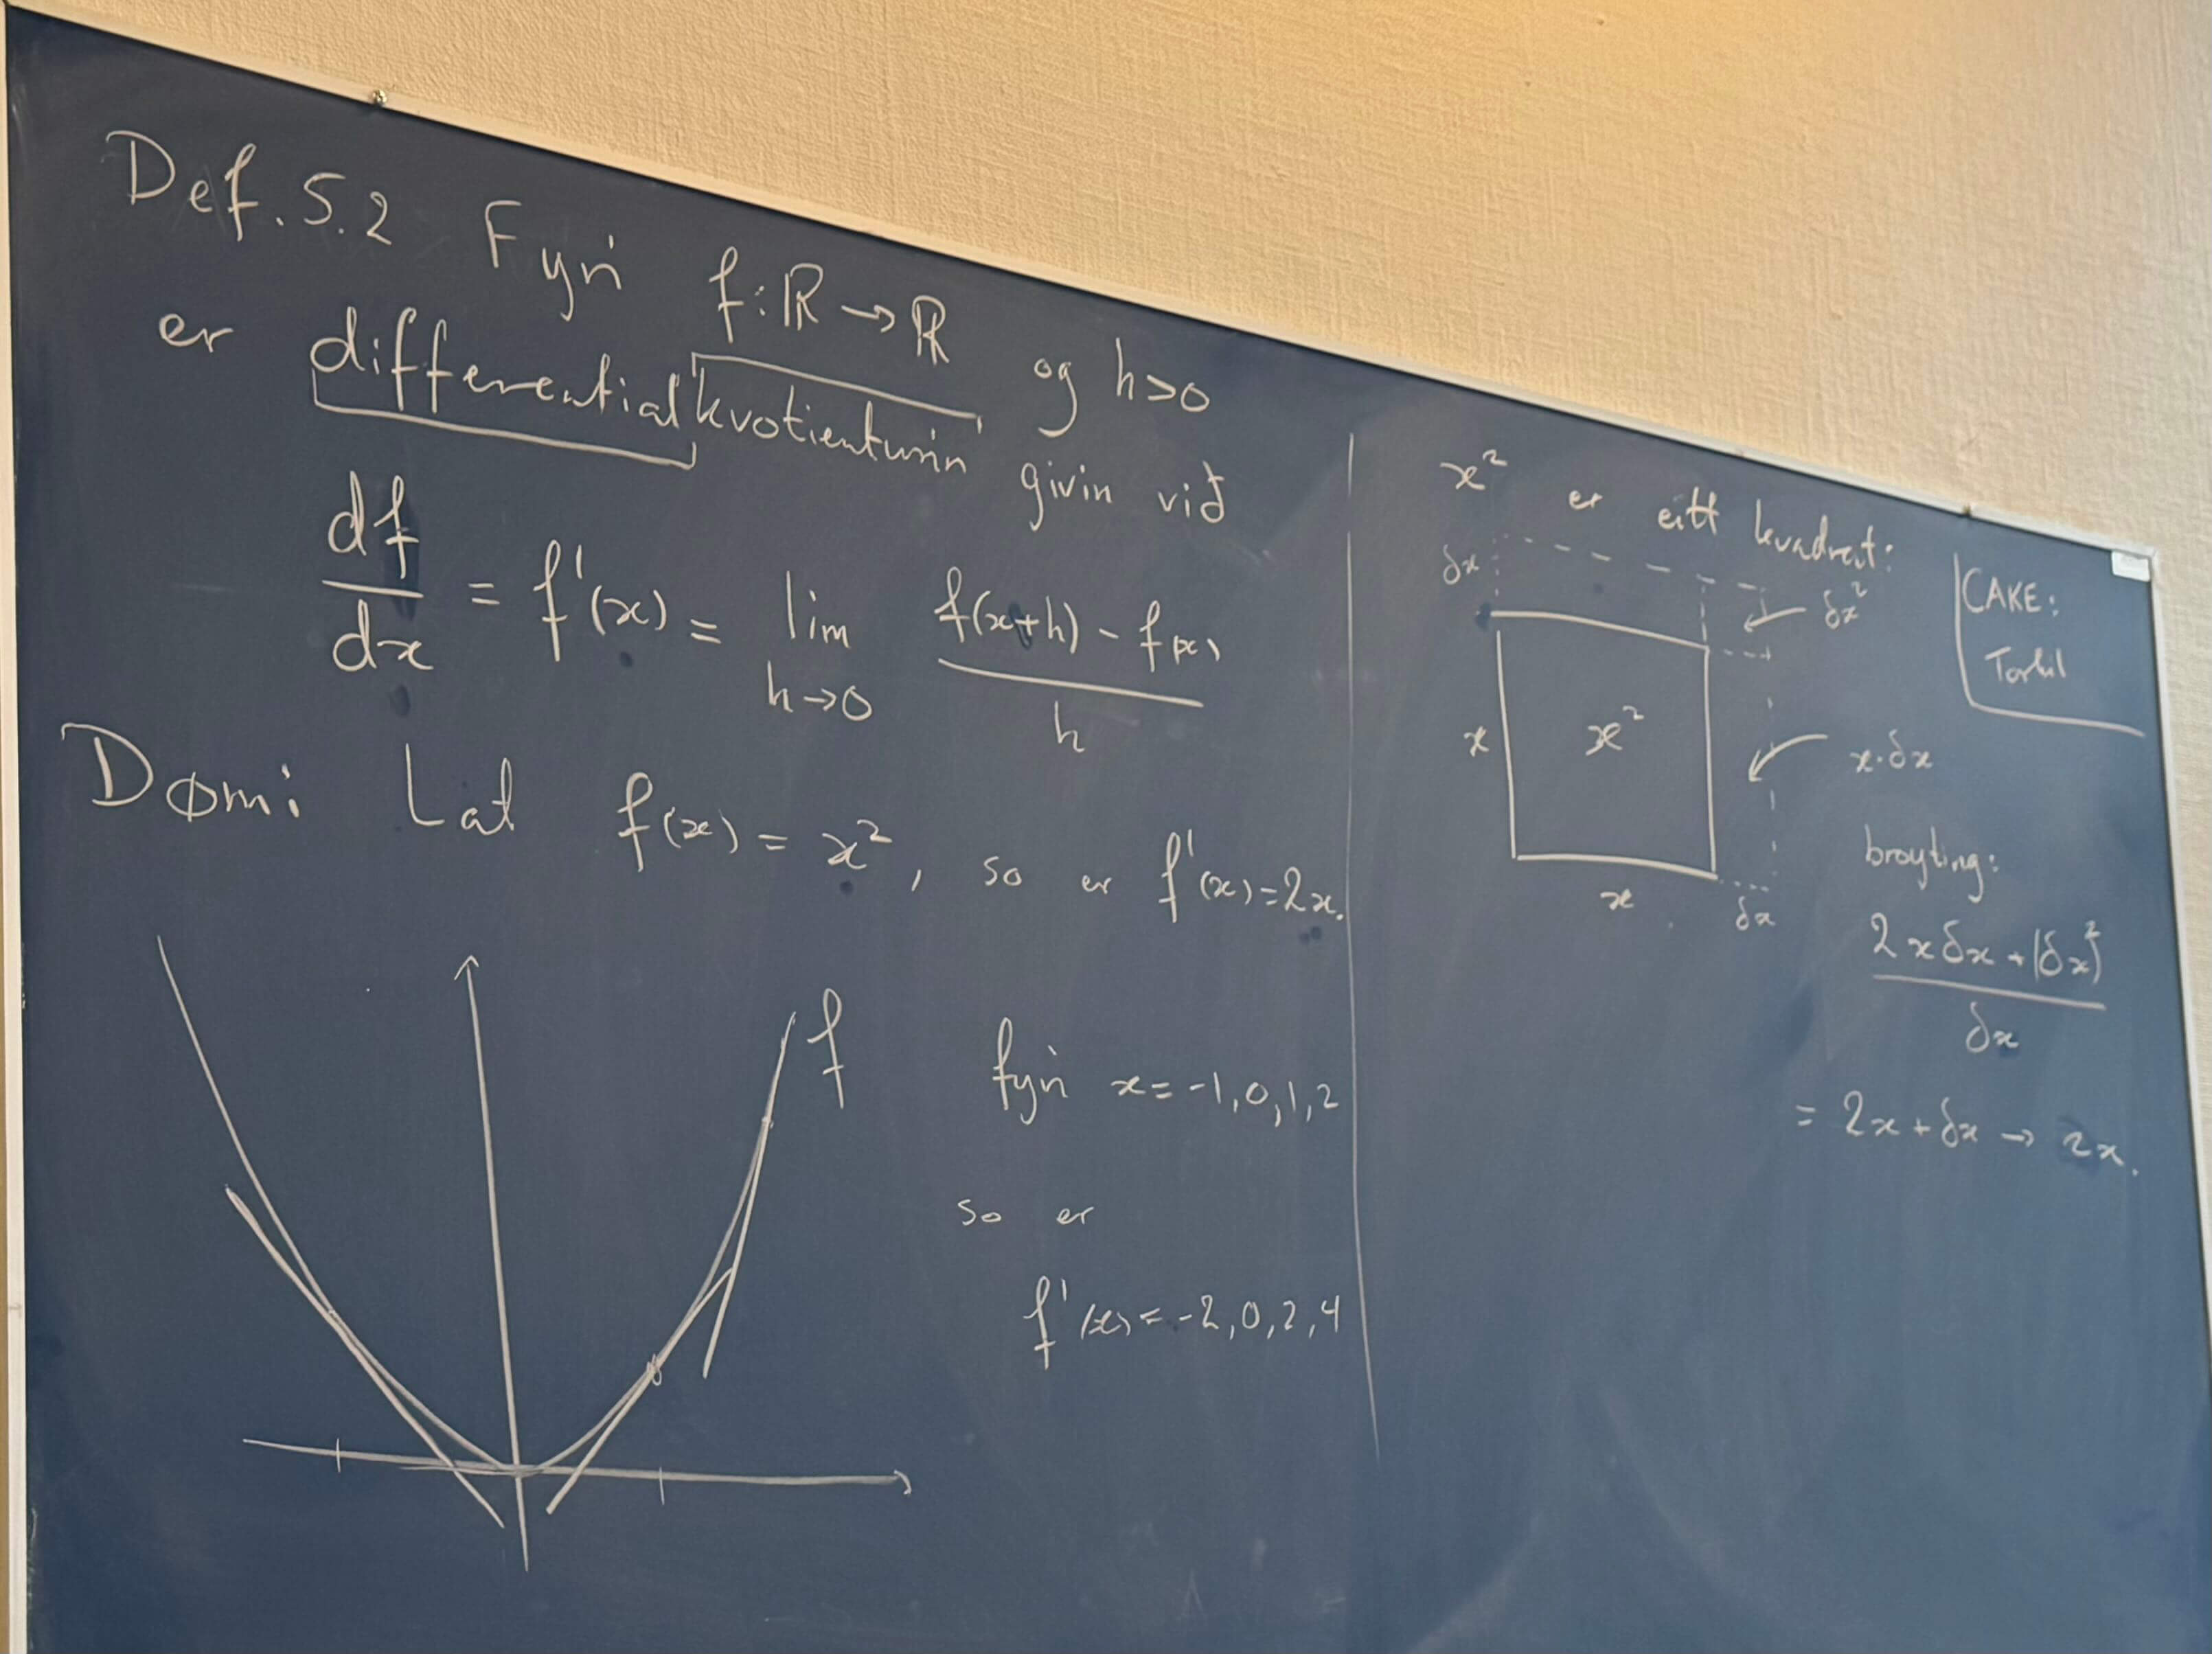 Def. 5.2 Fyri f: ℝ → ℝ og h>0
er differentialkvotienturin givin við
df/dx = f'(x) = lim h→0 (f(x+h) - f(x))/h
Dømi Lat f(x) = x², so er f'(x) = 2x.
f
fyri x = -1, 0, 1, 2
so er
f'(x) = -2, 0, 2, 4
x² er eitt kvadrat:
δx
δx²
x
x²
x·δx
x
δx
broyting:
(2xδx + (δx)²)/δx
= 2x + δx → 2x.
CAKE: